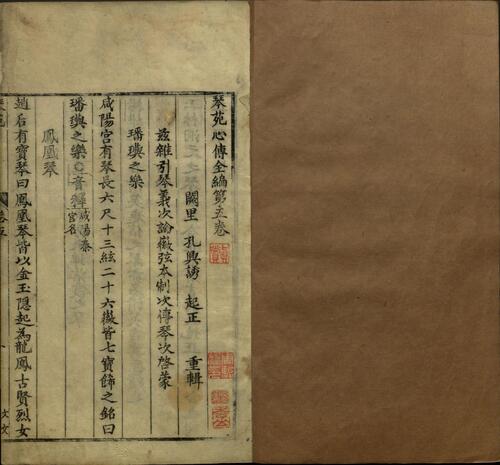 琴苑心傳全編第五卷
闕里 孔興誘 起正 重輯
兹雜引琴義次論徽弦本制次傳琴次啓蒙
璠璵之樂
咸陽宮有琴長六尺十三絃二十六徽皆七寶飾之銘曰
璠璵之樂○音釋咸陽秦宮名
鳳凰琴
趙后有寶琴曰鳳凰琴皆以金玉隠起為龍鳳古賢烈女